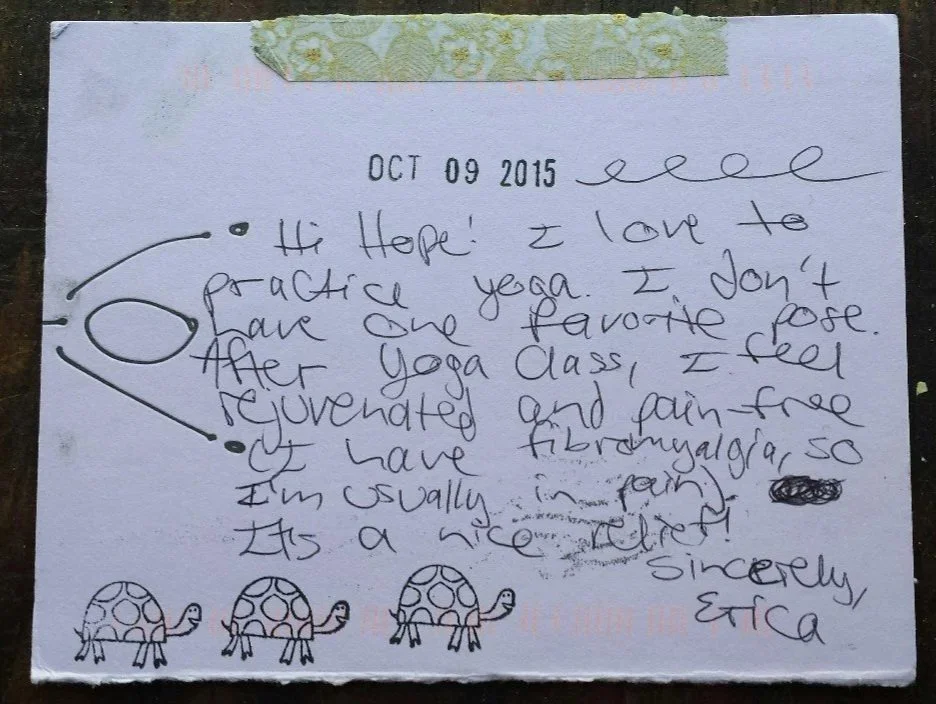 OCT 09 2015
Hi Hope! I love to
practice yoga. I don't
have one favorite pose.
After yoga class, I feel
rejuvenated and pain-free
(I have fibromyalgia, so
I'm usually in pain).
It's a nice relief!
Sincerely,
Erica